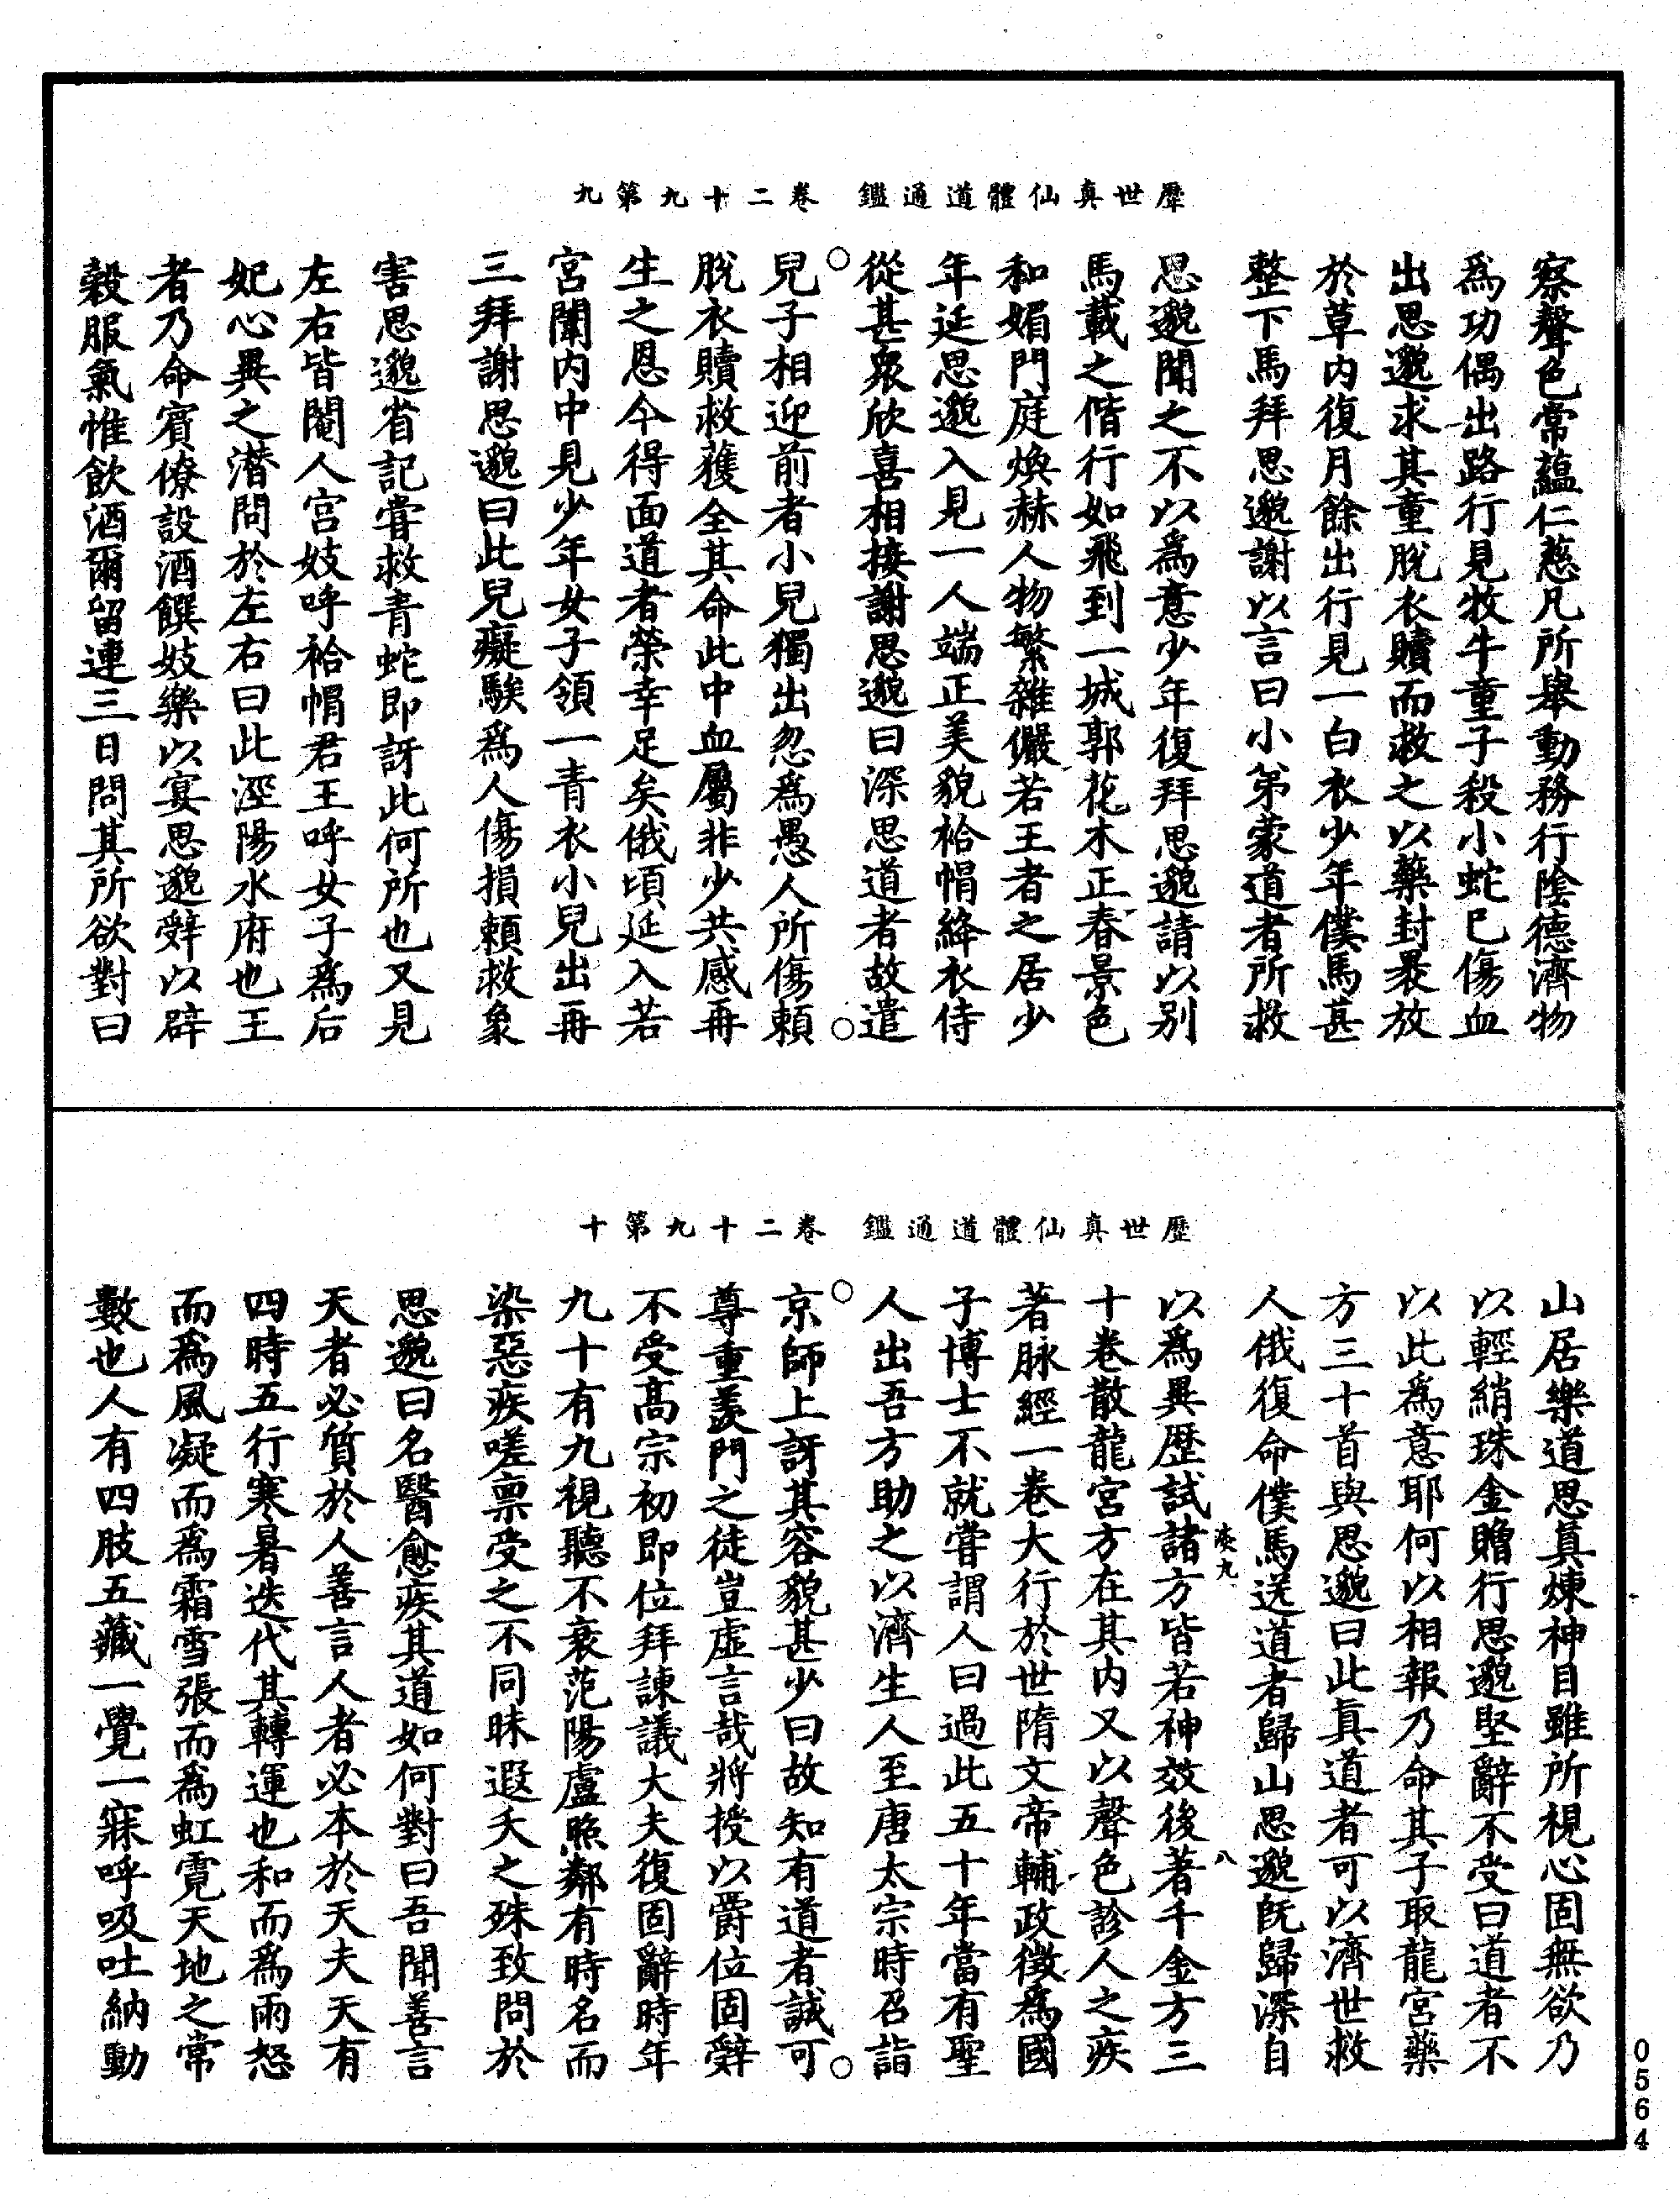 歷世真仙體道通鑑　卷二十九第九
察聲色常蘊仁慈凡所舉動務行陰德濟物
爲功偶出路行見牧牛童子殺小蛇已傷血
出思邈求其童脫衣贖而救之以藥封裹放
於草內復月餘出行見一白衣少年僕馬甚
整下馬拜思邈謝以言曰小弟蒙道者所救
思邈聞之不以爲意少年復拜思邈請以别
馬載之偕行如飛到一城郭花木正春景色
和媚門庭煥赫人物繁雜儼若王者之居少
年延思邈入見一人端正美貌袷帽絳衣侍
從甚衆欣喜相接謝思邈曰深思道者故遣
兒子相迎前者小兒獨出忽爲愚人所傷賴
脫衣贖救獲全其命此中血屬非少共感再
生之恩今得面道者榮幸足矣俄頃延入若
宮闈內中見少年女子領一青衣小兒出再
三拜謝思邈曰此兒癡騃爲人傷損賴救象
害思邈省記嘗救青蛇即訝此何所也又見
左右皆閹人宮妓呼袷帽君王呼女子爲后
妃心異之潛問於左右曰此涇陽水府也王
者乃命賓僚設酒饌妓樂以宴思邈辤以辟
穀服氣惟飲酒爾留連三日問其所欲對曰
歷世真仙體道通鑑　卷二十九第十
山居樂道思真煉神目雖所視心固無欲乃
以輕綃珠金贈行思邈堅辭不受曰道者不
以此爲意耶何以相報乃命其子取龍宮藥
方三十首與思邈曰此真道者可以濟世救
人俄復命僕馬送道者歸山思邈既歸深自
淡九　八
以爲異歷試諸方皆若神效後著千金方三
十卷散龍宮方在其內又以聲色診人之疾
著脉經一卷大行於世隋文帝輔政徵爲國
子博士不就嘗謂人曰過此五十年當有聖
人出吾方助之以濟生人至唐太宗時召詣
京師上訝其容貌甚少曰故知有道者誠可
尊重羨門之徒豈虛言哉將授以爵位固辤
不受高宗初即位拜諫議大夫復固辭時年
九十有九視聽不衰范陽盧照鄰有時名而
染惡疾嗟禀受之不同昧遐夭之殊致問於
思邈曰名醫愈疾其道如何對曰吾聞善言
天者必質於人善言人者必本於天夫天有
四時五行寒暑迭代其轉運也和而爲雨怒
而爲風凝而爲霜雪張而爲虹霓天地之常
數也人有四肢五藏一覺一寐呼吸吐納動
0564